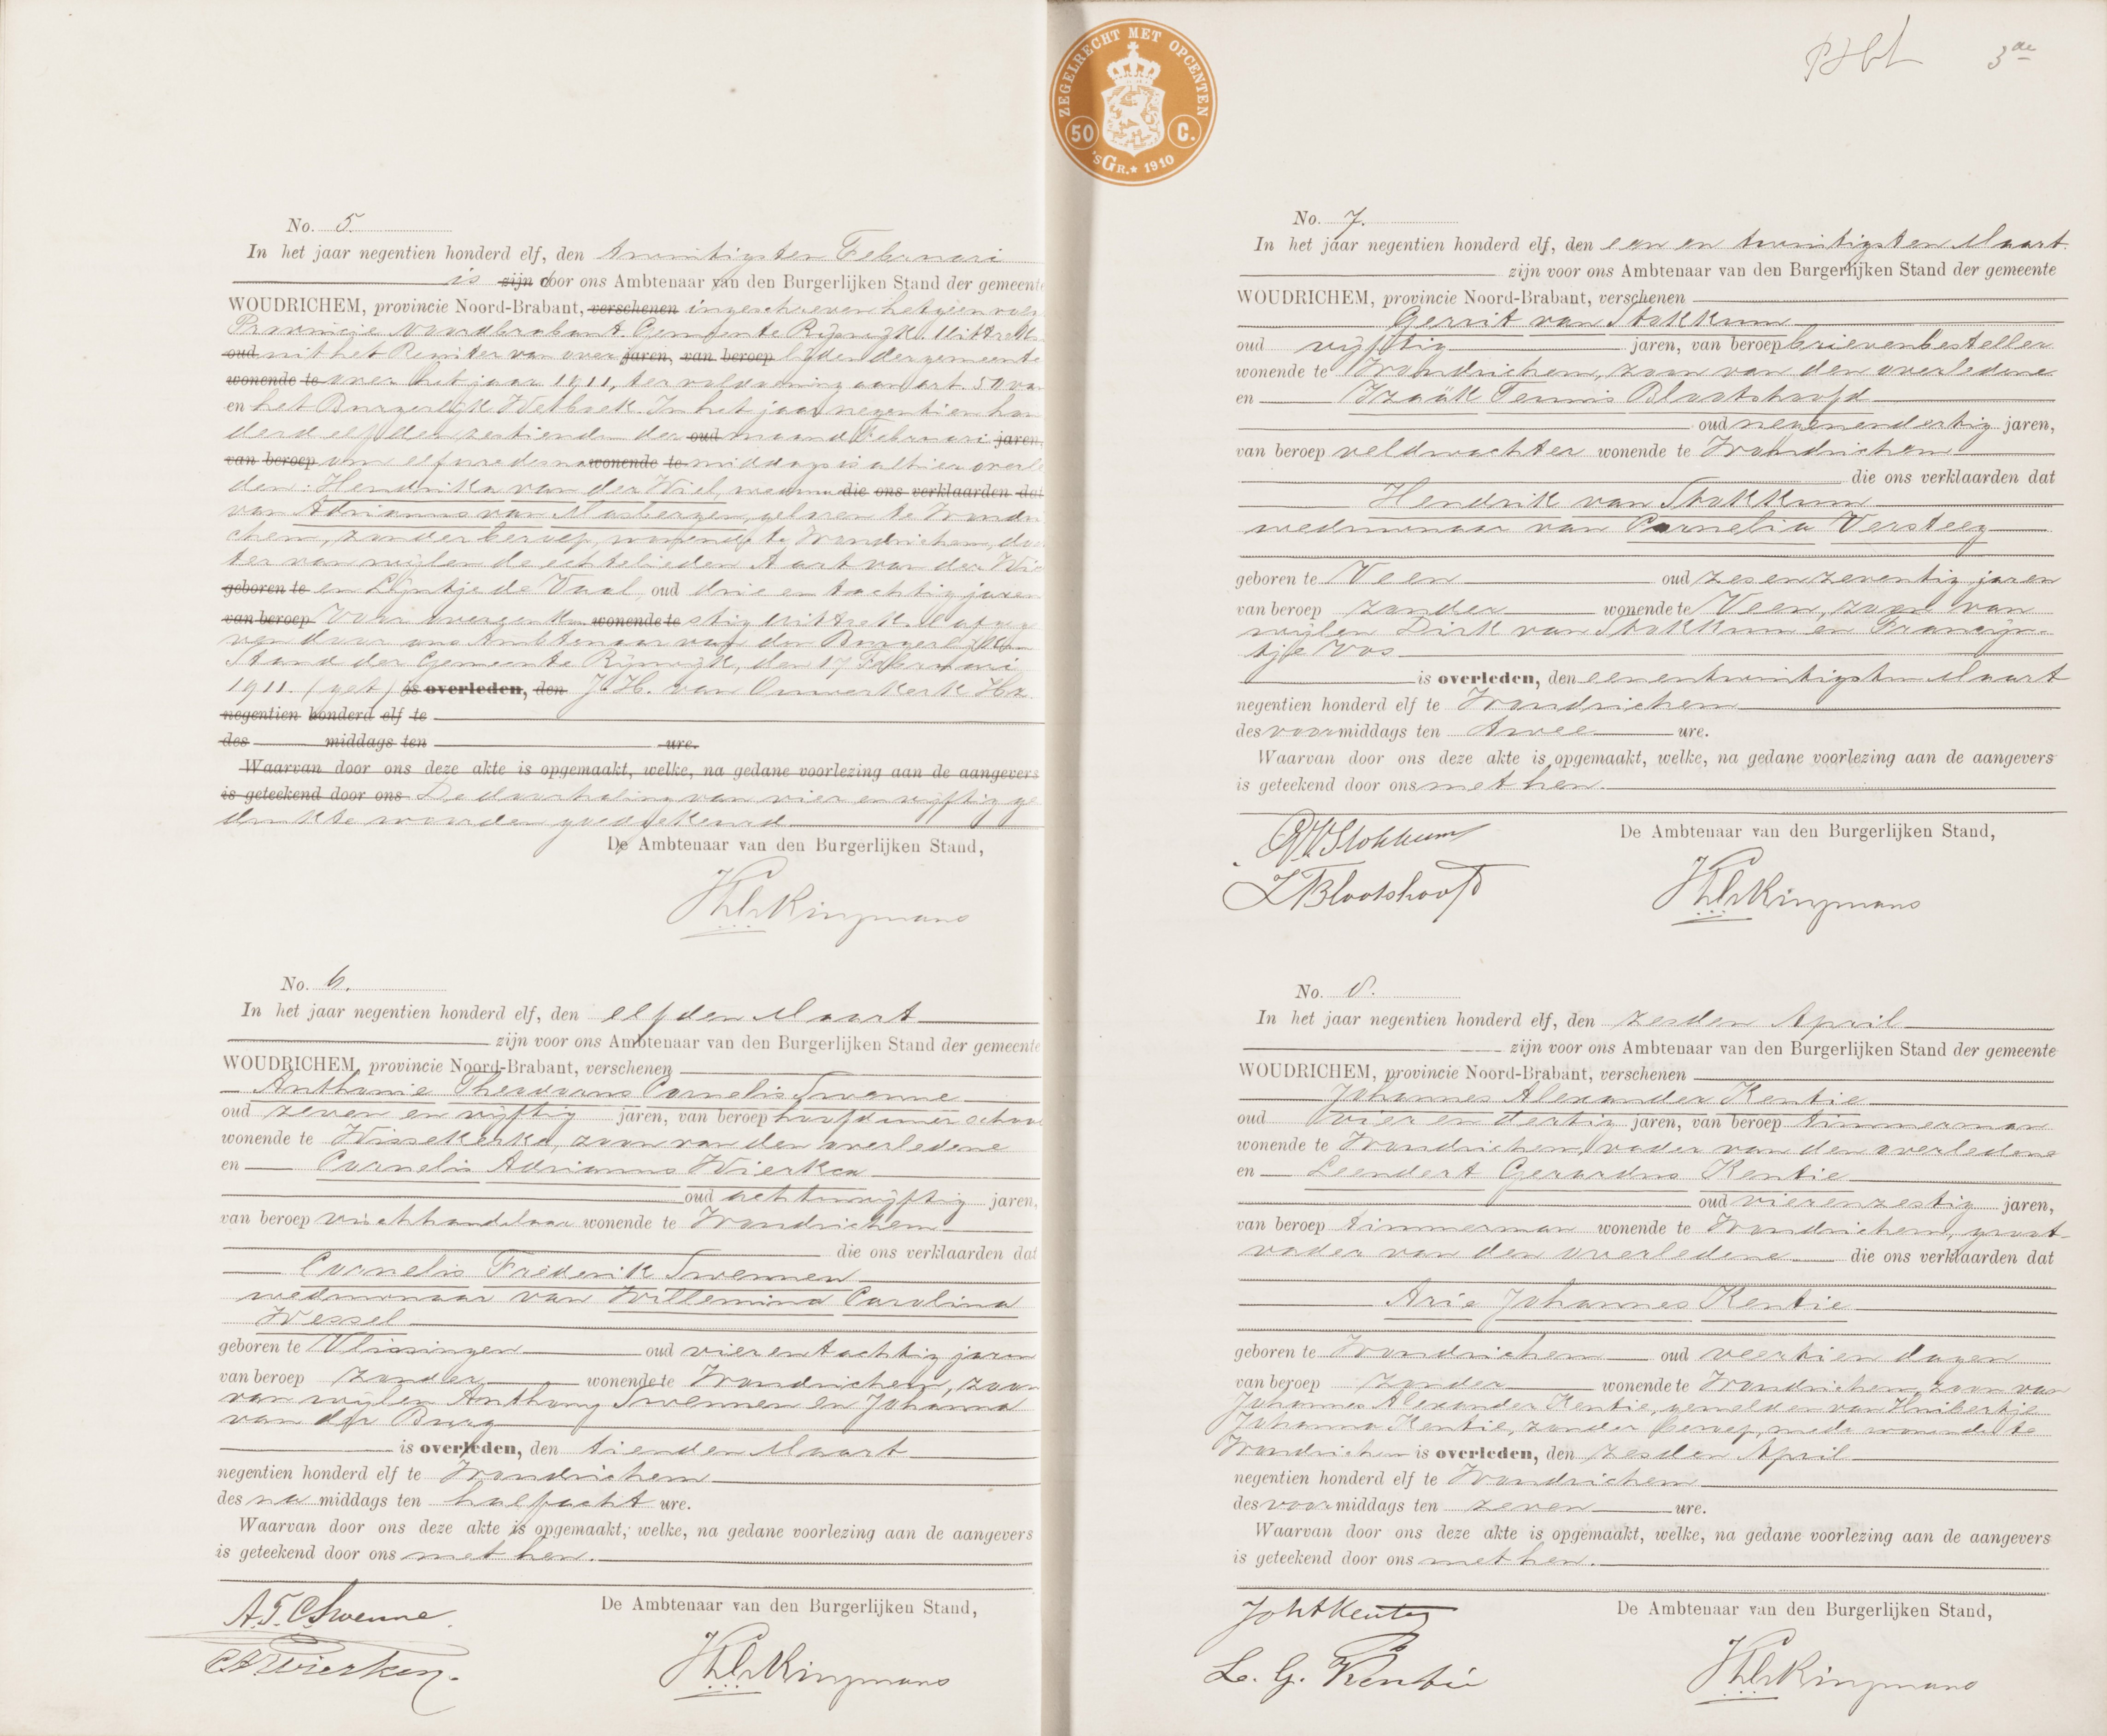 No. 5.
In het jaar negentien honderd elf, den twintigsten Februari
is zijn door ons Ambtenaar van den Burgerlijken Stand der gemeente
WOUDRICHEM, provincie Noord-Brabant, verschenen ingeschreven hetgeen volgt
Provincie Noordbrabant. Gemeente Rijswijk. Uittreksel
oud uit het Register van over jaren, van beroep lijden der gemeente
wonende te over het jaar 1911, ter voldoening aan art. 50 van
en het Burgerlijk Wetboek. In het jaar negentien hon
derd elf den zestienden der oud maand Februari jaren,
van beroep om elf ure des na wonende te middags is alhier overle
den: Hendrika van der Wiel, weduwe die ons verklaarden dat
van Adrianus van Masbergen, geboren te Woudri
chem, zonder beroep, wonende te Woudrichem, doch
ter van wijlen de echtelieden Aart van der Wiel
geboren te en Lijntje de Vaal, oud drie en tachtig jaren
van beroep Voor overeenkom wonende te stig uittreksel afgege
ven door ons Ambtenaar van den Burgerlijken
Stand der Gemeente Rijswijk, den 17 Februari
1911. (get) is overleden, den J. H. van Ouwerkerk Hz.
negentien honderd elf te
des middags ten ure.
Waarvan door ons deze akte is opgemaakt, welke, na gedane voorlezing aan de aangevers
is geteekend door ons De doorhaling van vier en vijftig ge
drukte woorden goedgekeurd
De Ambtenaar van den Burgerlijken Stand,
No. 6.
In het jaar negentien honderd elf, den elfden Maart
zijn voor ons Ambtenaar van den Burgerlijken Stand der gemeente
WOUDRICHEM, provincie Noord-Brabant, verschenen
Anthonie Theodorus Cornelis Swenne
oud zeven en vijftig jaren, van beroep hoofd eener school
wonende te Wissekerke, zoon van den overledene
en Cornelis Adrianus Wierken
oud achtenvijftig jaren,
van beroep vischhandelaar wonende te Woudrichem
die ons verklaarden dat
Cornelis Frederik Swennen
weduwnaar van Willemina Carolina
Wessel
geboren te Vlissingen oud vierentachtig jaren
van beroep zonder wonende te Woudrichem, zoon
van wijlen Anthony Swennen en Johanna
van der Burg
is overleden, den tienden Maart
negentien honderd elf te Woudrichem
des na middags ten half acht ure.
Waarvan door ons deze akte is opgemaakt, welke, na gedane voorlezing aan de aangevers
is geteekend door ons met hen.
De Ambtenaar van den Burgerlijken Stand,
A.T.C. Swenne.
C A Wierken.
ZEGELRECHT MET OPCENTEN
50 C.
'sGR. 1910
3de
No. 7.
In het jaar negentien honderd elf, den een en twintigsten Maart
zijn voor ons Ambtenaar van den Burgerlijken Stand der gemeente
WOUDRICHEM, provincie Noord-Brabant, verschenen
Gerrit van Stokkum
oud vijftig jaren, van beroep brievenbesteller
wonende te Woudrichem, zoon van den overledene
en Izaäk Teunis Blootshoofd
oud negenendertig jaren,
van beroep veldwachter wonende te Woudrichem
die ons verklaarden dat
Hendrik van Stokkum
weduwnaar van Cornelia Versteeg
geboren te Veen oud zesenzeventig jaren
van beroep zonder wonende te Veen, zoon van
wijlen Dirk van Stokkum en Francijn-
tje Vos
is overleden, den eenentwintigsten Maart
negentien honderd elf te Woudrichem
des voormiddags ten twee ure.
Waarvan door ons deze akte is opgemaakt, welke, na gedane voorlezing aan de aangevers
is geteekend door ons met hen.
De Ambtenaar van den Burgerlijken Stand,
G V Stokkum
I T Blootshoofd
No. 8.
In het jaar negentien honderd elf, den zesden April
zijn voor ons Ambtenaar van den Burgerlijken Stand der gemeente
WOUDRICHEM, provincie Noord-Brabant, verschenen
Johannes Alexander Kentie
oud vier en dertig jaren, van beroep timmerman
wonende te Woudrichem, vader van den overledene
en Leendert Gerardus Kentie
oud vierenzestig jaren,
van beroep timmerman wonende te Woudrichem, groot-
vader van den overledene die ons verklaarden dat
Arie Johannes Kentie
geboren te Woudrichem oud veertien dagen
van beroep zonder wonende te Woudrichem, zoon van
Johannes Alexander Kentie, gemeld en van Huibertje
Johanna Kentie, zonder beroep, mede wonende te
Woudrichem is overleden, den zesden April
negentien honderd elf te Woudrichem
des voormiddags ten zeven ure.
Waarvan door ons deze akte is opgemaakt, welke, na gedane voorlezing aan de aangevers
is geteekend door ons met hen.
De Ambtenaar van den Burgerlijken Stand,
L. G. Kentie